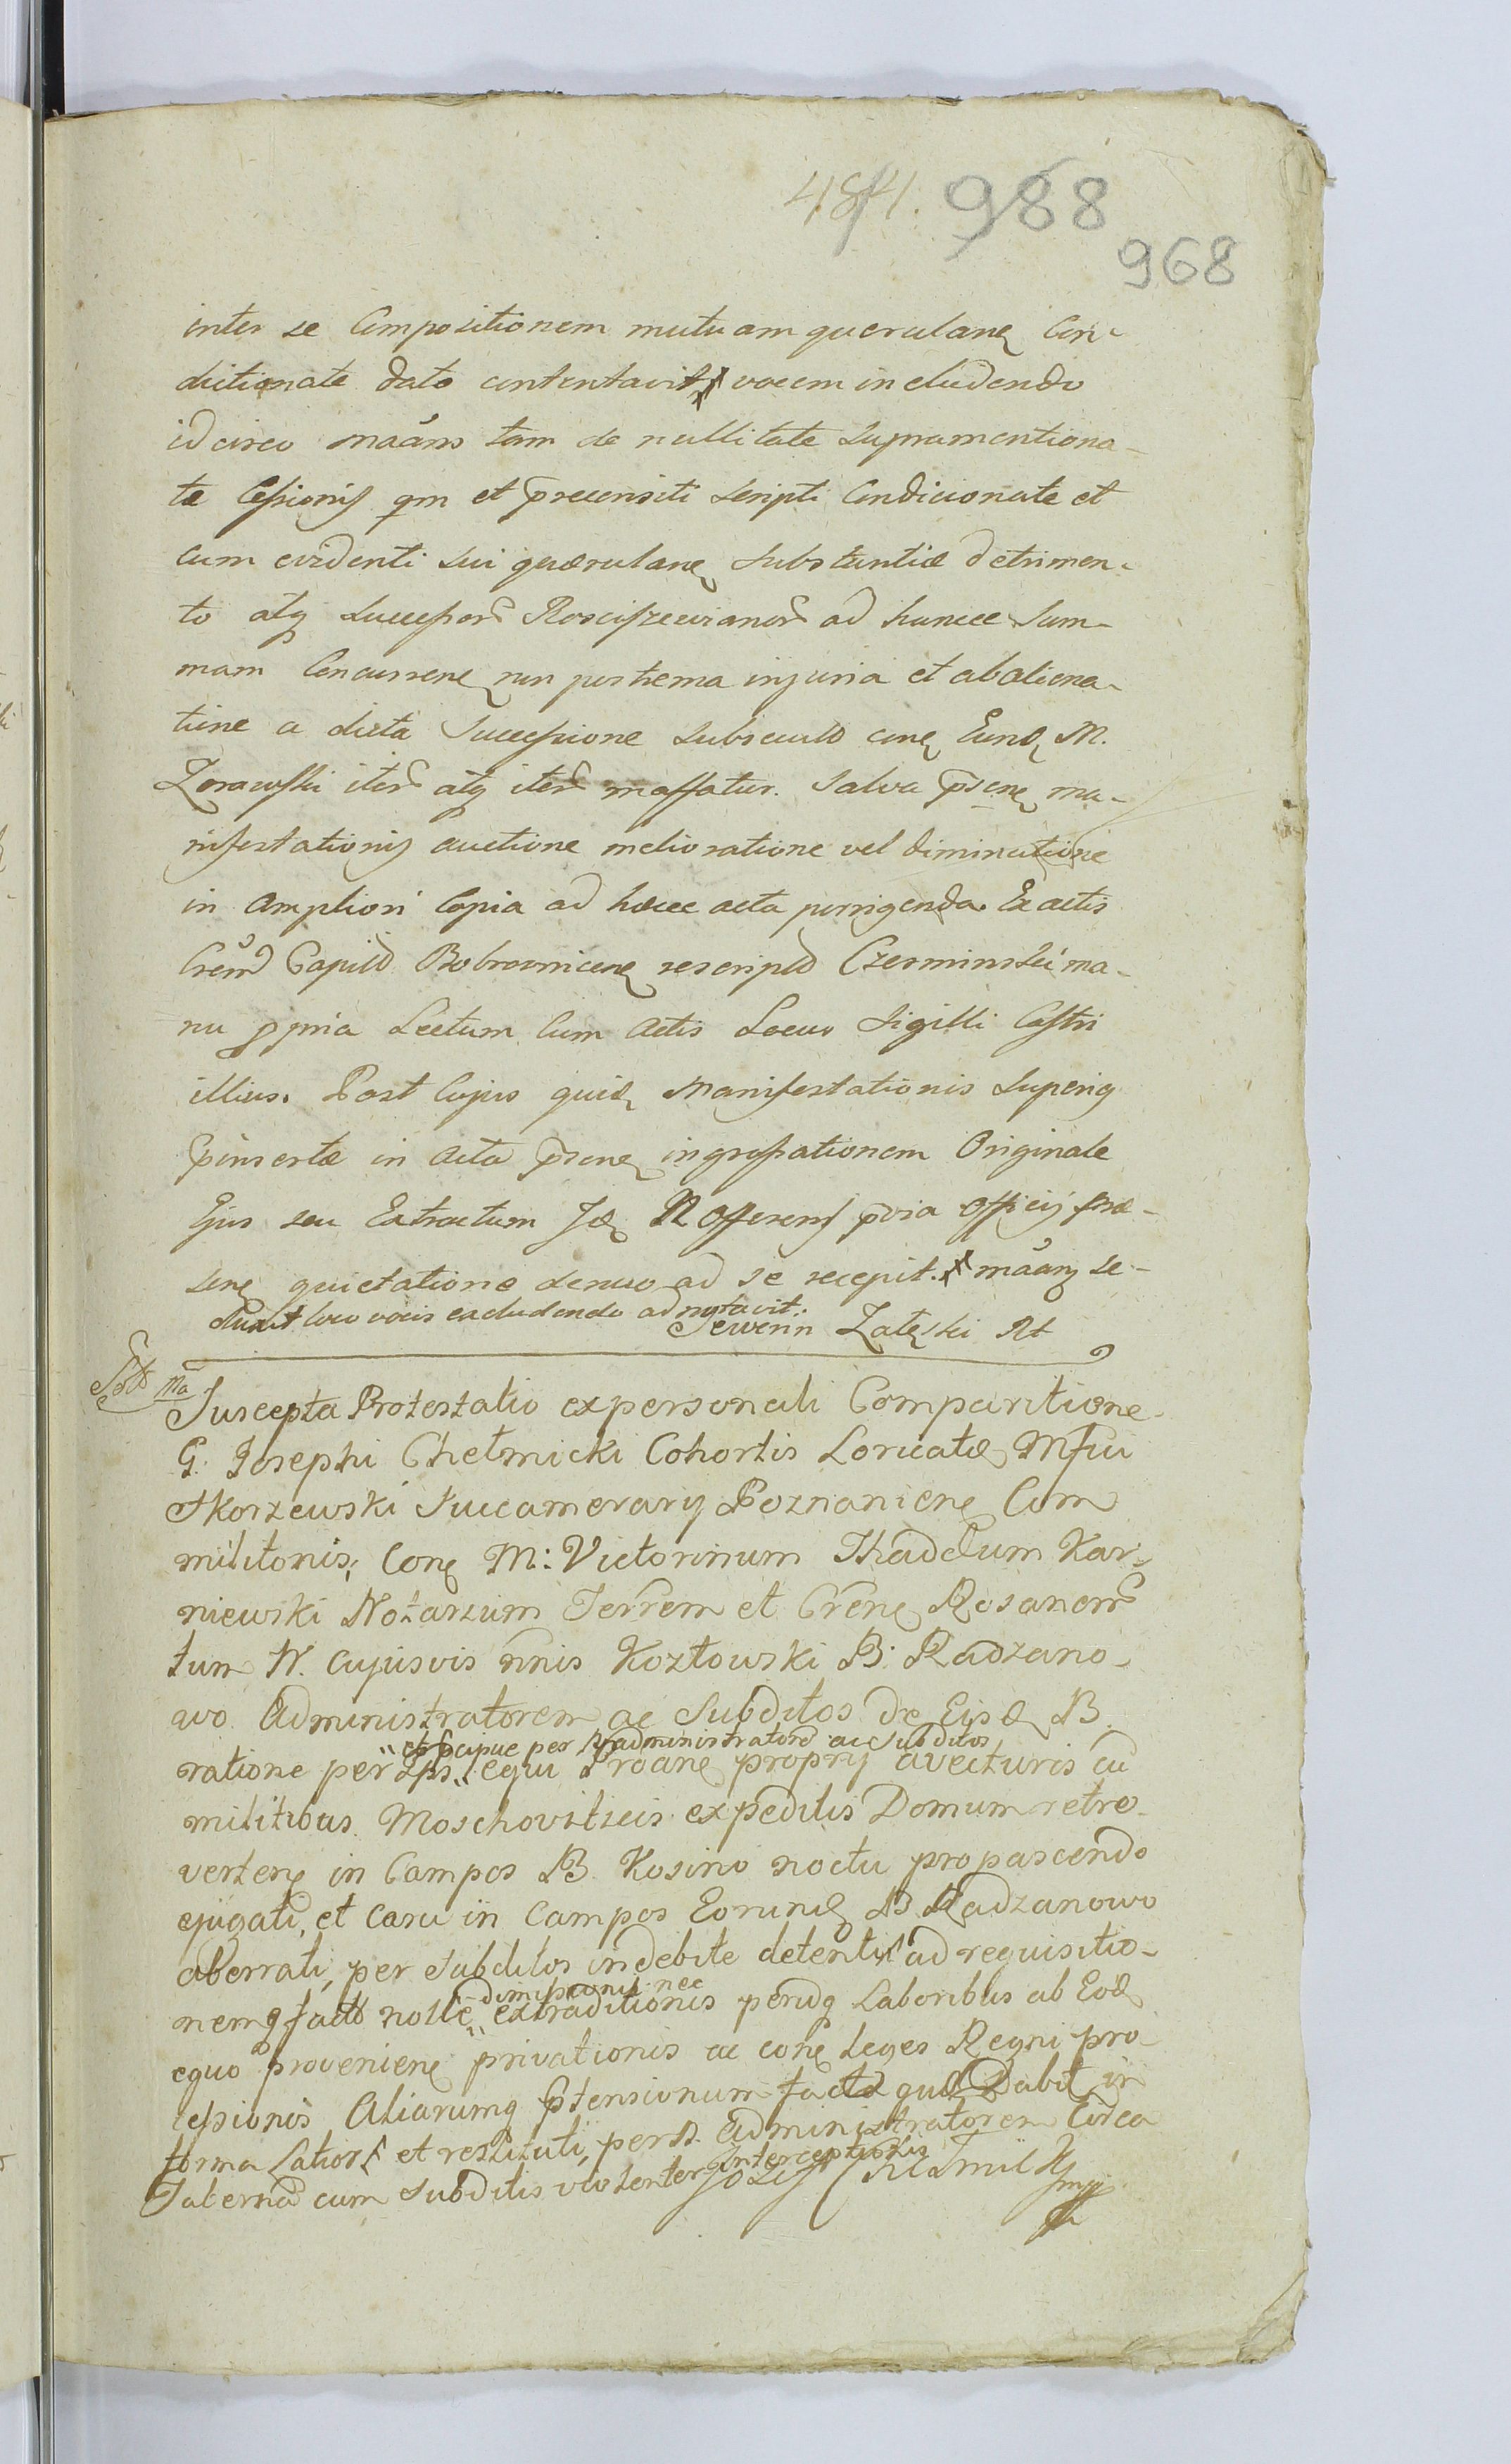 988
968
inter se Compositionem mutuam querulane Con-
ditionate dato contentavit vocem includendo
id circo maans tam de nullitate supramentiona-
te Cessionis qm et precensiti scripti Condicionate et
cum evidenti sui quærulane substantiæ detrimen-
to atq Successor Roscissewianor ad huncce Sum-
mam Concurrene non postrema injuria et abaliena-
tione a dicta Successione subsecuto cone Eund M.
Zorawski iter atq iter maffatur. Salva psene ma-
nifestationis auctione melioratione vel diminutione
in ampliori Copia ad hæcce acta porrigenda. Ex actis
Crem Capild Bobrownicene rescriptd Czerminski ma-
nu ppria Lectum Cum Actis Locus Sigilli Castri
illius. Post Cujus quid Manifestationis superig
pinsertæ in Acta psene ingrossationem Originale
Ejus seu Extractum Id N Offerens pvia Officij præ-
sene quietatione denuo ad se recepit. maans se-
duxit loco vocis excludendo adnotavit.
Sewerin Załęski Rt
Ma
Suscepta Protestatio ex personali Comparitione
G. Josephi Chełmicki Cohortis Loricatæ Mfici
Skorzewski Succamerary Poznaniene Com
militonis, Cone M: Victorinum Thadeum Kar-
niewski Notarium Terrem et Crene Rosanem
tum N. cujusvis nnis Kozłowski B: Radzano-
wo Administratorem ac Subditos de Eisd B.
et pcipue per N administratore ac Subditos
ratione per Ipsos equi Proane proprij avecturis cu
militibus Moschoviticis expeditis Domum retro-
vertene in Campos B. Kosino noctu pro pascendo
ejugati, et casu in Campos Eorund B Radzanowo
aberrati, per subditos indebite detenti ad requisitio-
dimissionis nec
nemq facto nolle extraditionis perudq Laboribus ab Eod
equo proveniene privationis ac cone Leges Regni pro-
cessionis Aliarumq ptensionum facto qud Dabit in
forma Latiori et restituti, per N. Administratorem Circa
Tabernæ cum Subditis violenter Interceptionis
Jozef Chełmicki mpp